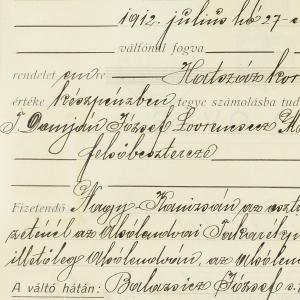 1912. július hó 27-
váltónál fogva
rendelet em re Hatszáz kor
értéke készpénzben tegye számolásba tud
T. Damján József Lovrencsecz
felsőbeszterecze
Fizetendő Nagy-Kanizsán az oszt
zeténél az Alsólendvai Takarékp
illetőleg Alsólendván, az alsólen
A váltó hátán: Balazsicz József s.